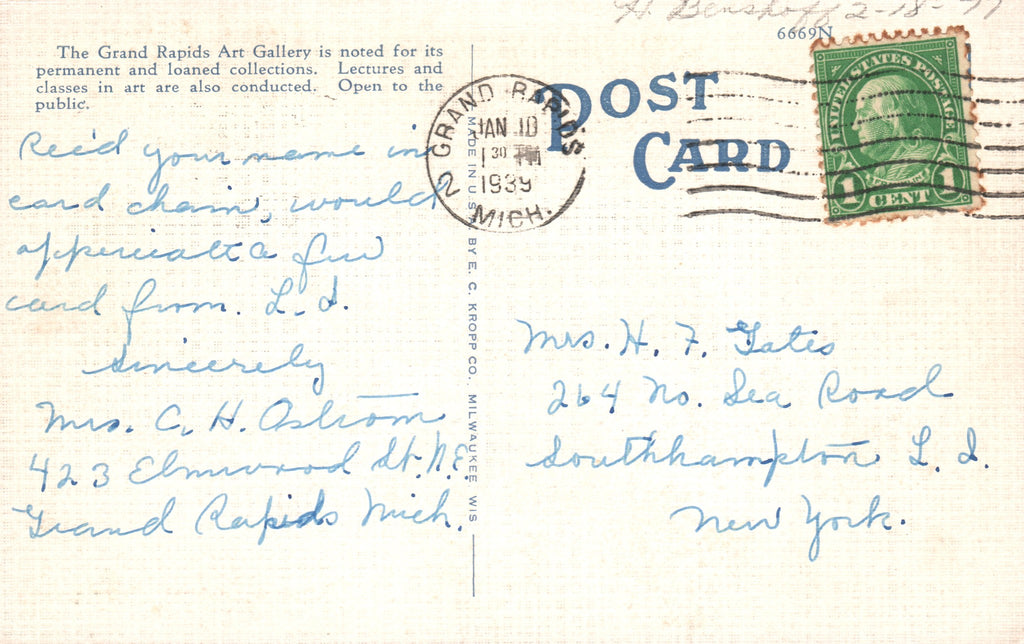 H. Benshoff 2-18-77
6669N
The Grand Rapids Art Gallery is noted for its
permanent and loaned collections. Lectures and
classes in art are also conducted. Open to the
public.
POST
CARD
2 GRAND RAPIDS
JAN 10
1 30 PM
1939
MICH.
UNITED STATES POSTAGE
1 CENT 1
MADE IN U.S. BY E. C. KROPP CO. MILWAUKEE WIS
Rec'd your name in
card chain, would
appericate a few
card from L. I.
Sincerely
Mrs. C. H. Ostrom
423 Elmwood St. N.E.
Grand Rapids Mich.
Mrs. H. F. Gates
264 No. Sea Road
Southhampton L. I.
New York.